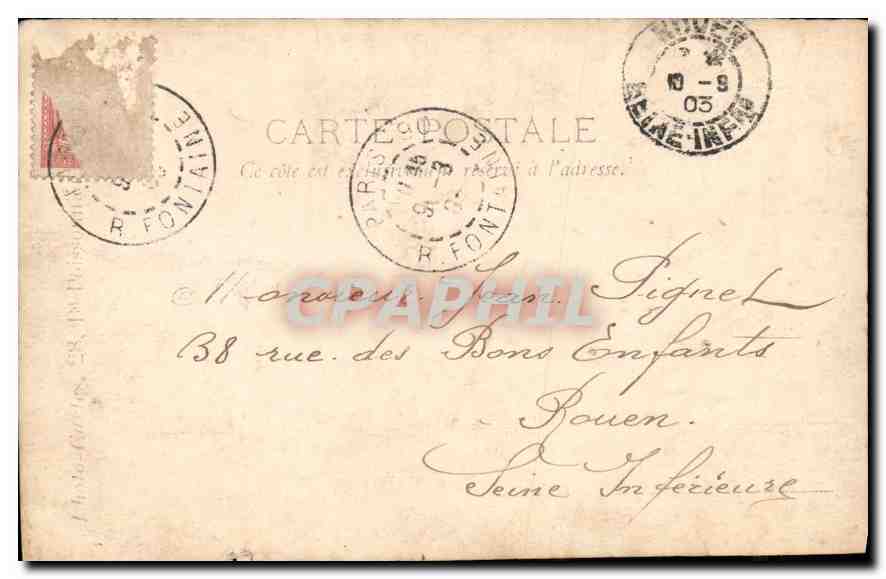 ROUEN
10 - 9
03
SEINE-INFRE
CARTE POSTALE
Ce côté est exclusivement réservé à l'adresse.
PARIS 90
R. FONTAINE
R. FONTAINE
Monsieur Jean Pignel
38 rue des Bons Enfants
Rouen.
Seine Inférieure
CPAPHIL